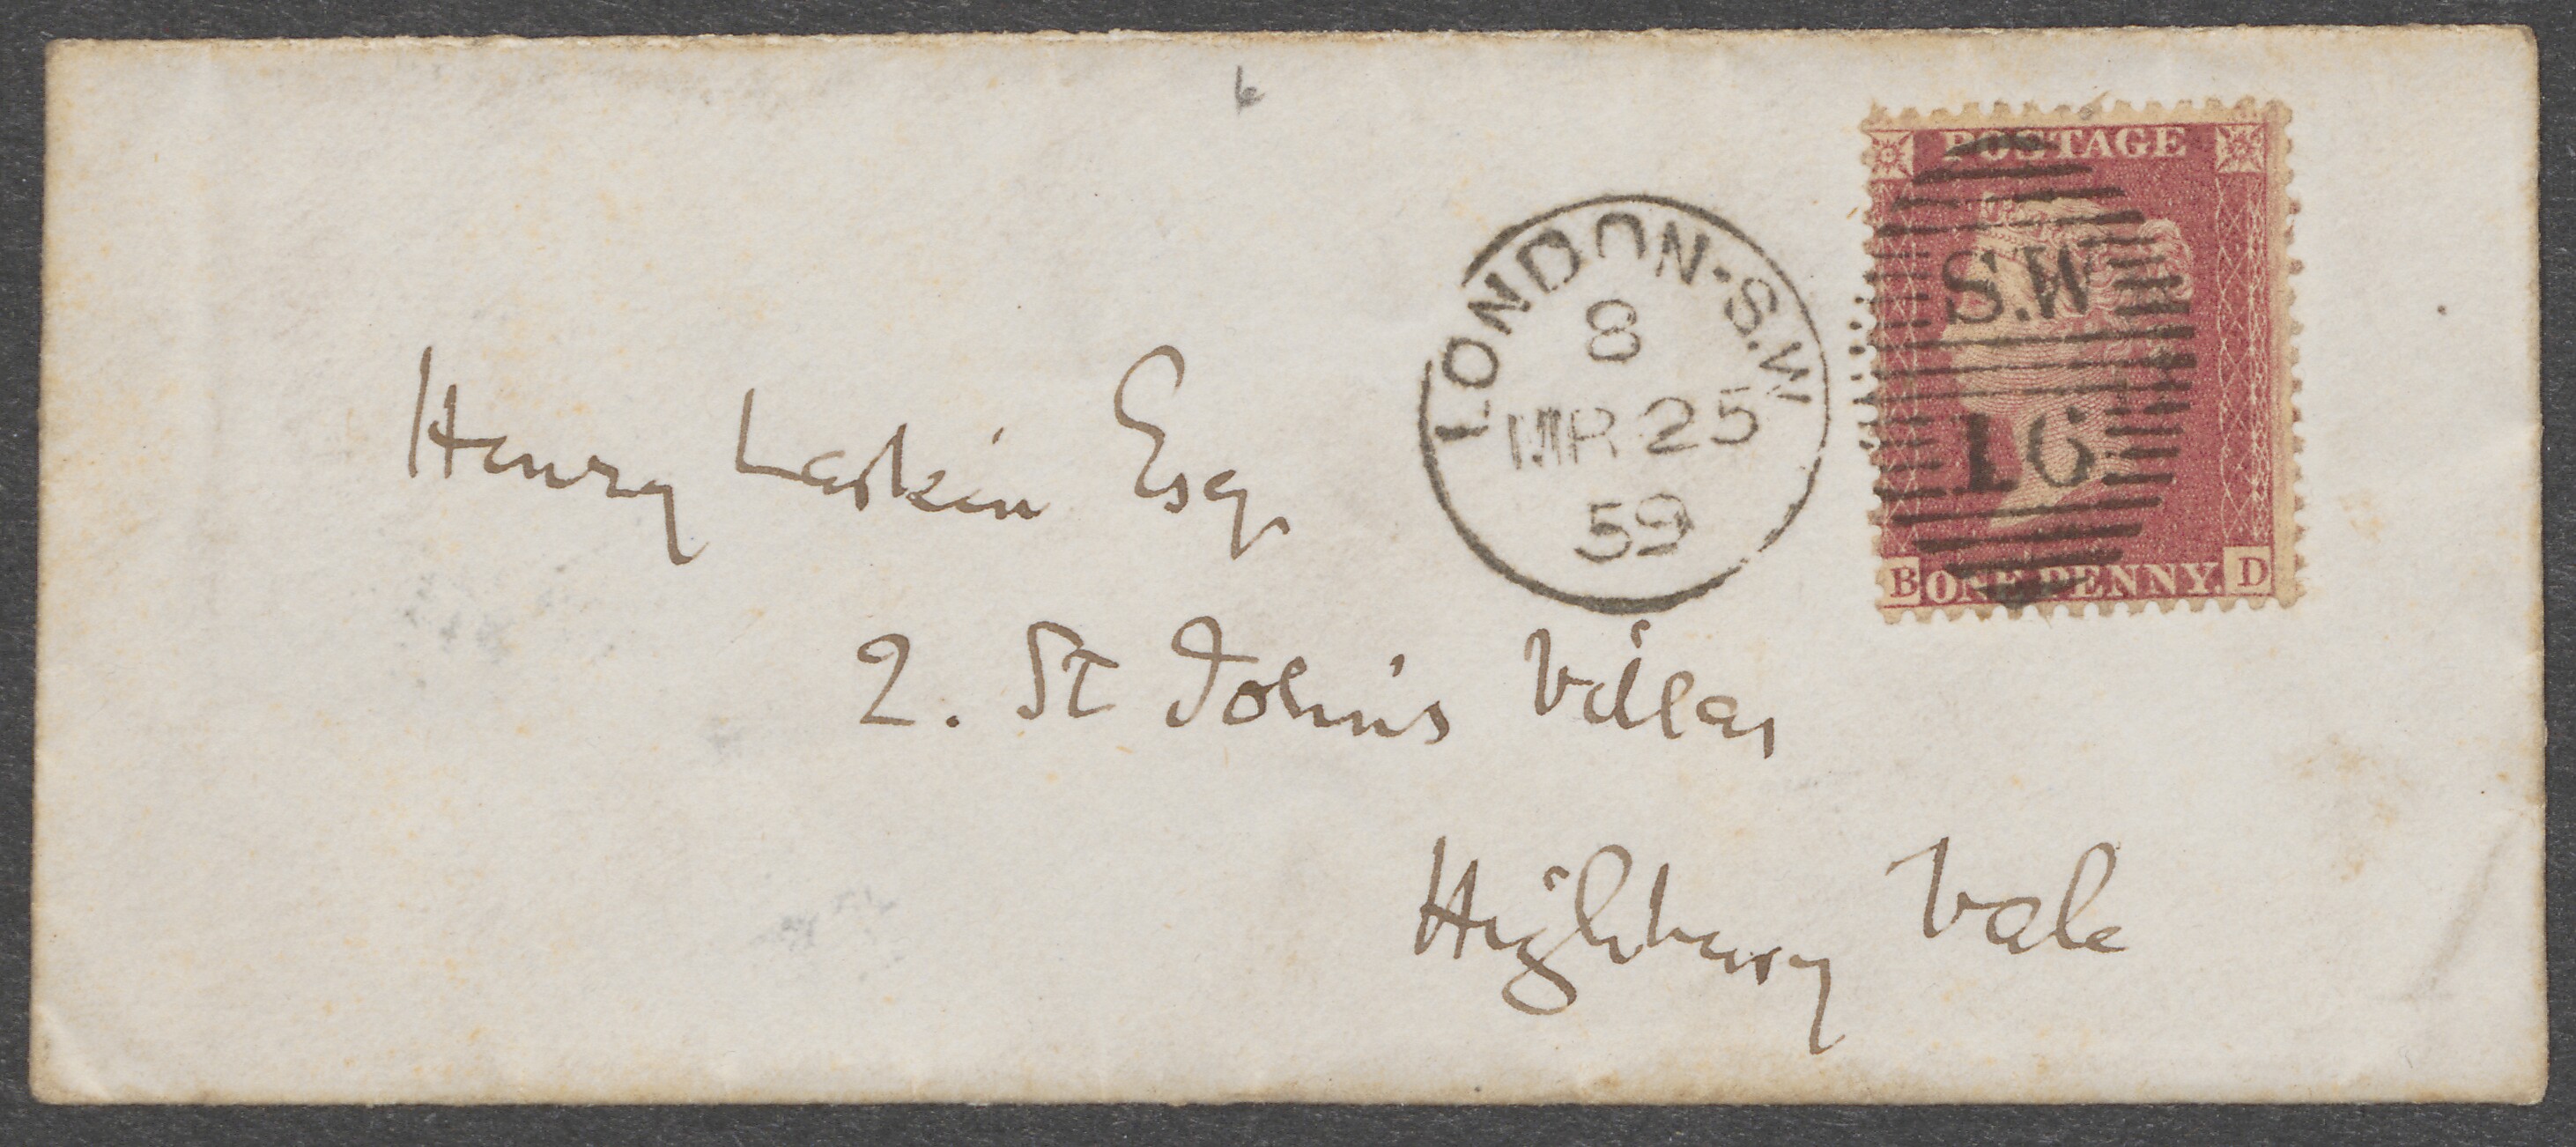 LONDON-S.W
8
MR 25
59
POSTAGE
S.W
16
B ONE PENNY. D
Henry Larkin Esq.
2. St John's Villas
Highbury Vale